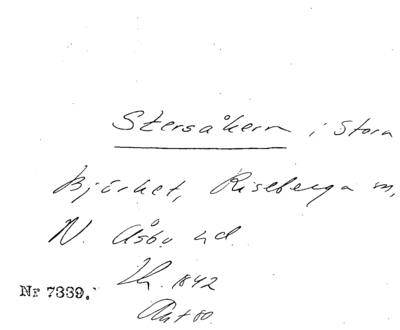 Stersåkern i Stora
Björket, Riseberga sn,
N. Åsbo hd.
Nr 7339. Lh. 1842
Akt 60.